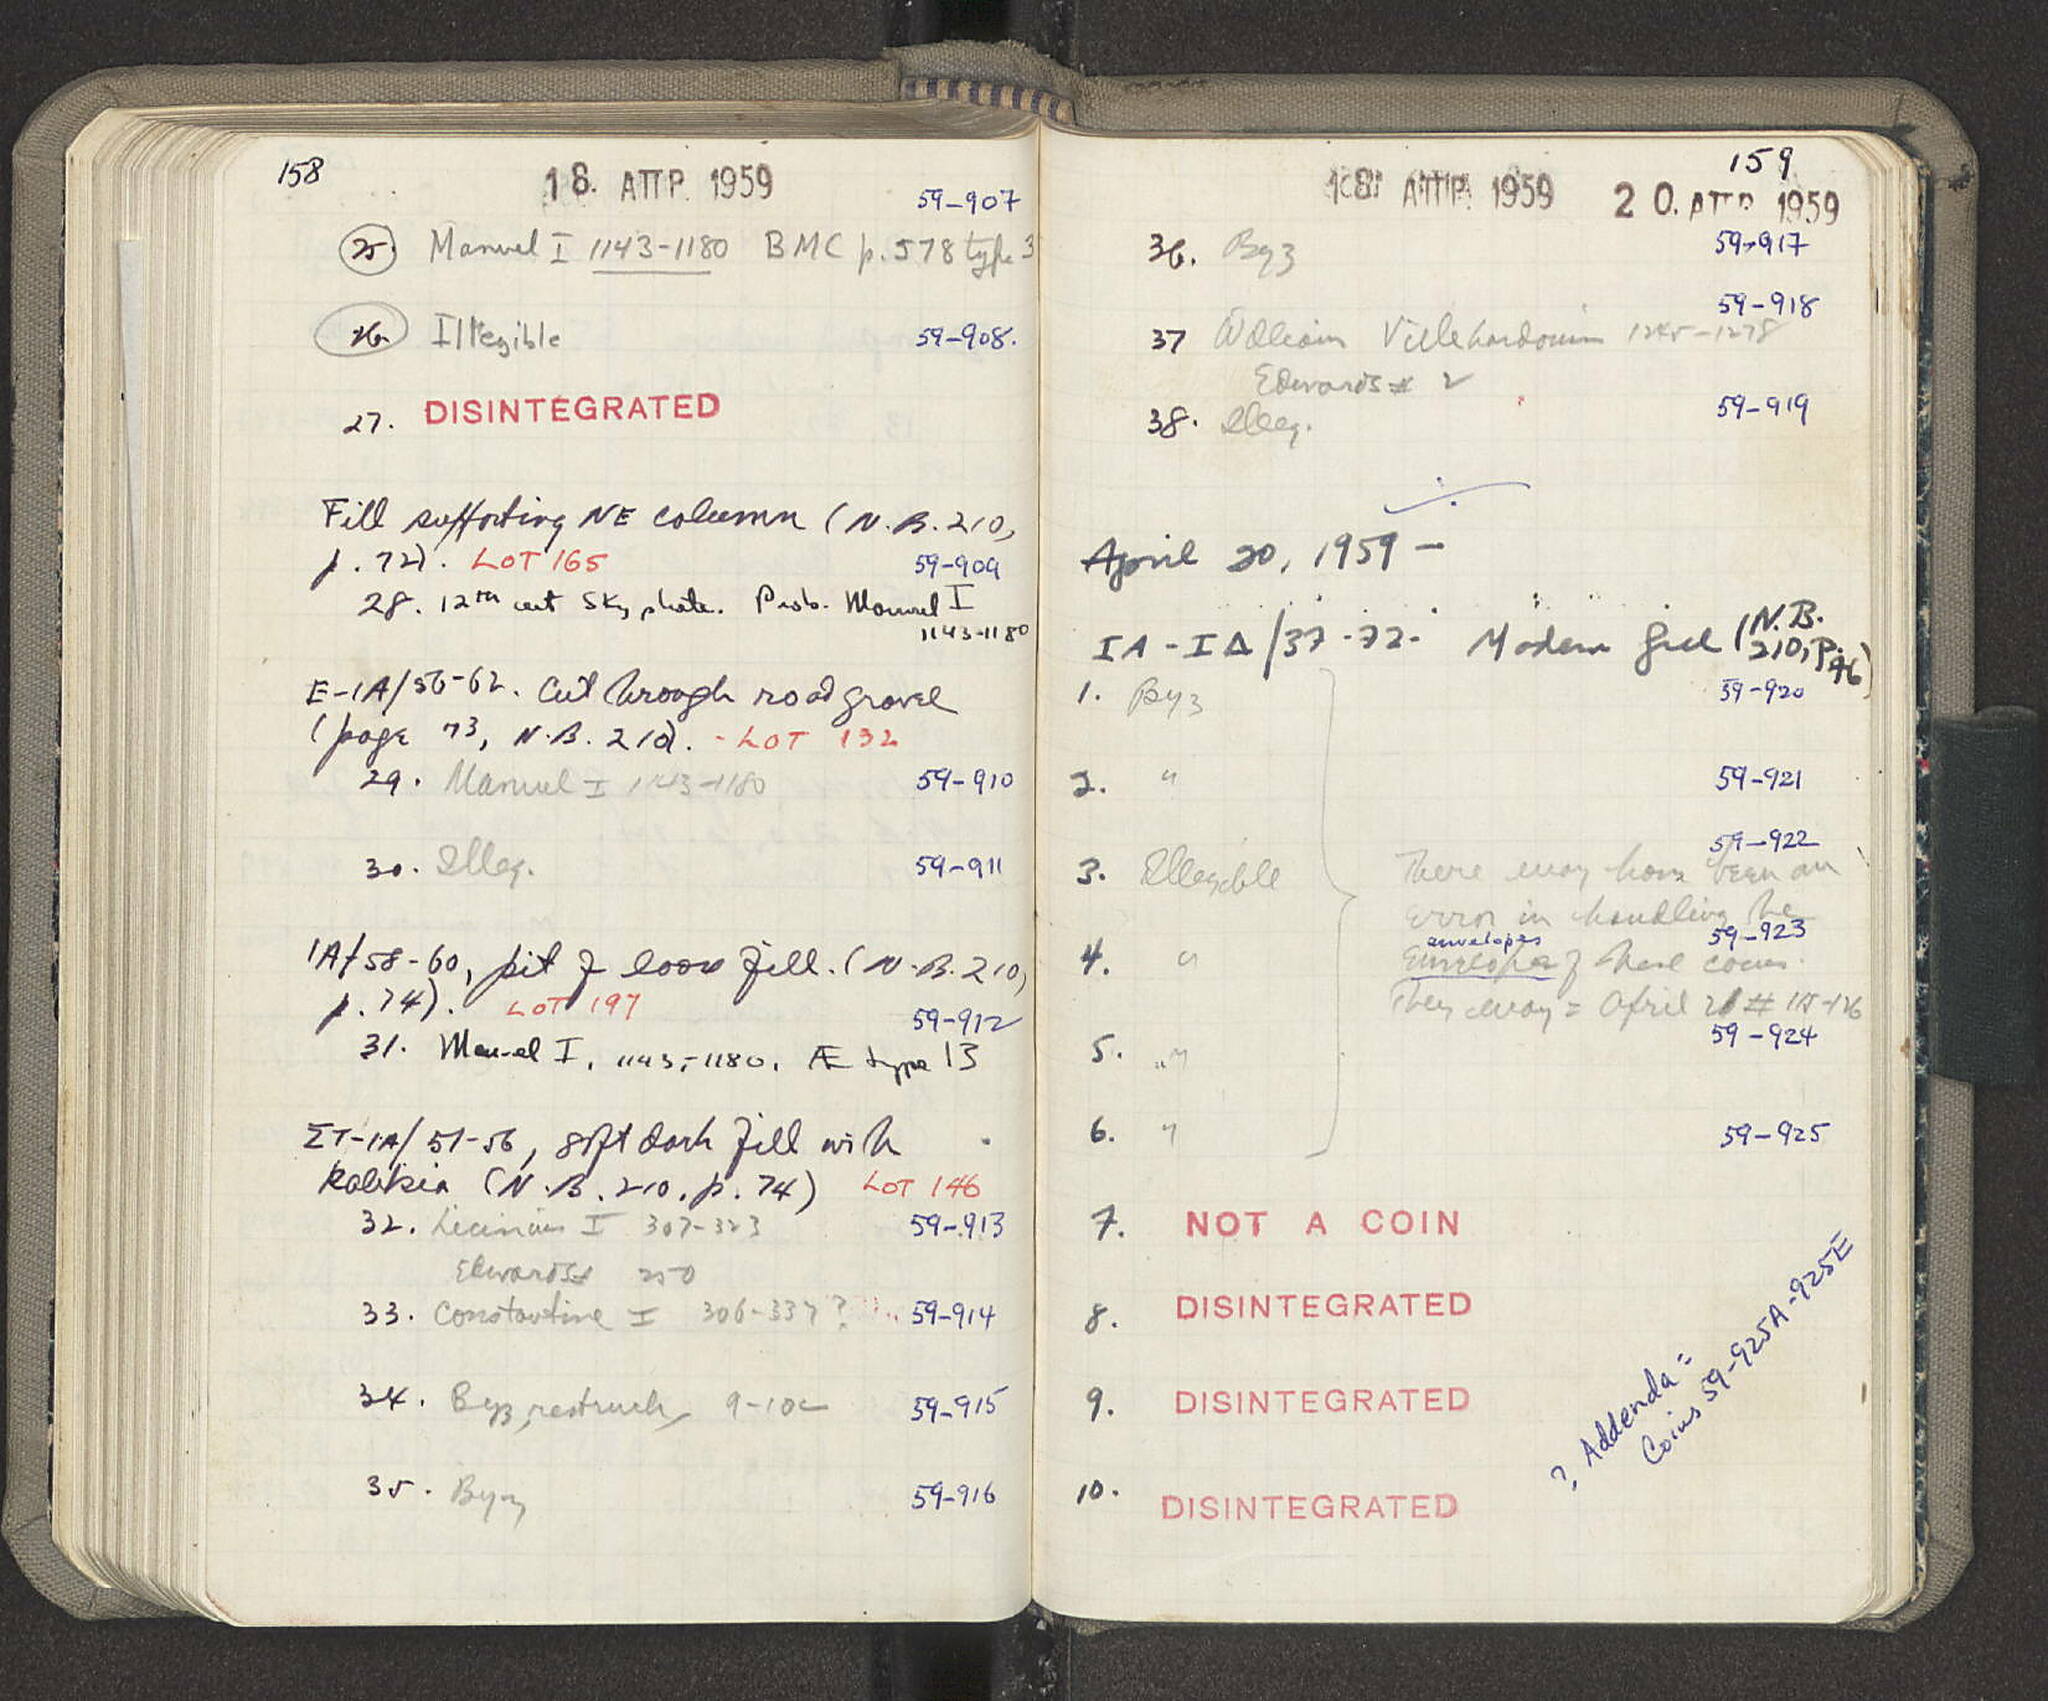 158
18. ΑΠΡ. 1959
59-907
25. Manuel I 1143-1180 BMC p. 578 type 3
26. Illegible 59-908.
27. DISINTEGRATED
Fill supporting NE column (N.B. 210,
p. 72). LOT 165 59-909
28. 12th cent Skyphate. Prob. Manuel I
1143-1180
E-IA/56-62. Cut through road gravel
(page 73, N.B. 210). - LOT 132
29. Manuel I 1143-1180 59-910
30. Illeg. 59-911
IA/58-60, pit of loose fill. (N.B. 210,
p. 74). LOT 197 59-912
31. Manuel I, 1143-1180. Æ type 13
ΣT-IA/51-56, soft dark fill with
(N.B. 210, p. 74) LOT 146
32. Licinius I 307-323 59-913
Edwards# 250
33. Constantine I 306-337? 59-914
34. Byz, restruck, 9-10c 59-915
35. Byz 59-916
159
18. ΑΠΡ. 1959 20. ΑΠΡ. 1959
59-917
36. Byz
59-918
37 William Villehardouin 1245-1278
Edwards# 2
59-919
38. Illeg.
April 20, 1959 -
IA-IΔ/37-72- Modern fill (N.B.
210, p. 76)
1. Byz 59-920
2. " 59-921
59-922
3. Illegible There may have been an
error in handling the
envelopes 59-923
4. " Envelopes of these coins.
They may = April 21 # 115-126
59-924
5. "
6. " 59-925
7. NOT A COIN
8. DISINTEGRATED
9. DISINTEGRATED
10. DISINTEGRATED
?. Addenda:
Coins 59-925A-925E